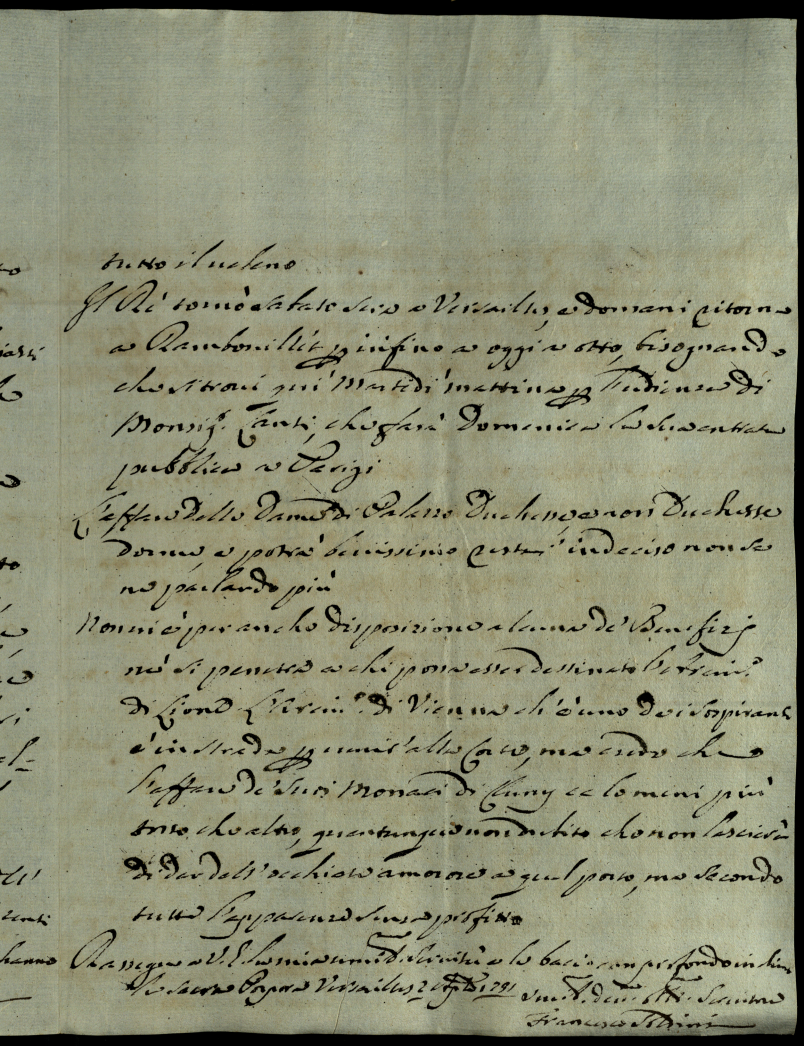 tutto il veleno
Il Rè tornò sabato sera a Versailles, e domani ritorna
a Rambouillèt p infino a oggi a otto, bisognando
che si trovi quì Martedi mattina p l'udienza di
Monsig.r Zanti, che farà Domenica la sua entrata
pubblica a Parigi
L'affare delle Dame di Palazzo Duchesse, e non Duchesse
dorme, e potrà benissimo restar indeciso non se
ne parlando più
Non vi è per anche disposizione alcuna de' Benefizj
nè si penetra a chi possa esser destinato l'Arciv.o
di Lione L'Arciv.o di Vienna ch'è uno dei sospiranti
è in strada p venir' alla Corte, ma credo che
l'affare de' suoi Monaci di Cluny ce lo meni più
tosto che altro, quantunque non dubito che non lascierà
di dar dell'occhiate amorose a quel posto, ma secondo
tutte l'apparenze senza profitto
Rassegno a V. E. la mia umil.ma servitù e le bacio con profondo inchino
la sacra Porpora Versailles 2
Francesco